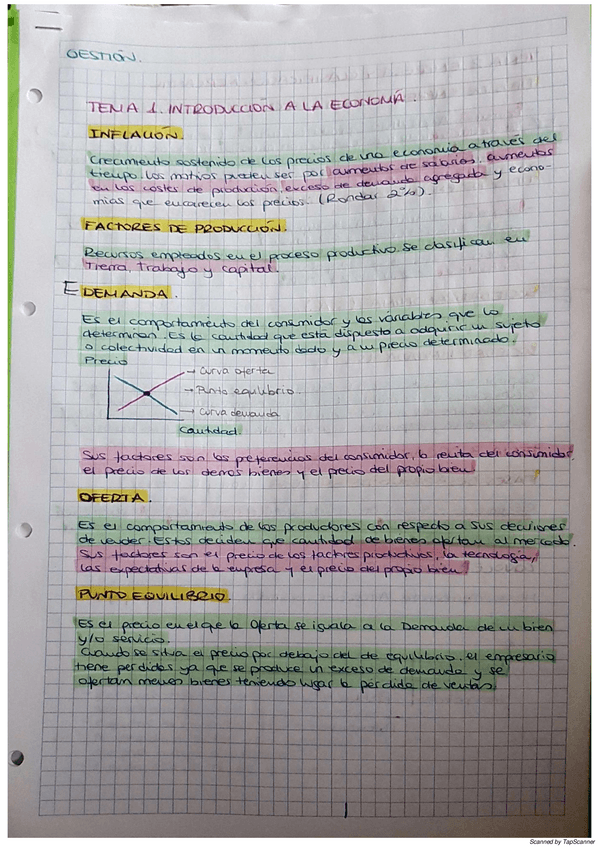 GESTIÓN.
TEMA 1. INTRODUCCIÓN A LA ECONOMÍA.
INFLACIÓN.
Crecimiento sostenido de los precios de una economía a través del
tiempo, los motivos pueden ser por aumentos de salarios, aumentos
en los costes de producción, exceso de demanda agregada y econo-
mías que encarecen los precios. (Rondar 2%).
FACTORES DE PRODUCCIÓN.
Recursos empleados en el proceso productivo. Se clasifican en
Tierra, Trabajo y capital.
E DEMANDA.
Es el comportamiento del consumidor y las variables que lo
determinan. Es la cantidad que está dispuesto a adquirir un sujeto
o colectividad en un momento dado y a un precio determinado.
Precio
→ Curva oferta
→ Punto equilibrio
→ Curva demanda
Cantidad
Sus factores son las preferencias del consumidor, la renta del consumidor,
el precio de los demás bienes y el precio del propio bien
OFERTA.
Es el comportamiento de los productores con respecto a sus decisiones
de vender. Estos deciden que cantidad de bienes ofertan al mercado.
Sus factores son el precio de los factores productivos, la tecnología,
las expectativas de la empresa y el precio del propio bien
PUNTO EQUILIBRIO.
Es el precio en el que la Oferta se iguala a la Demanda de un bien
y/o servicio.
Cuando se situa el precio por debajo del de equilibrio, el empresario
tiene perdidas ya que se produce un exceso de demanda y se
ofertan menos bienes teniendo lugar la pérdida de ventas.
Scanned by TapScanner